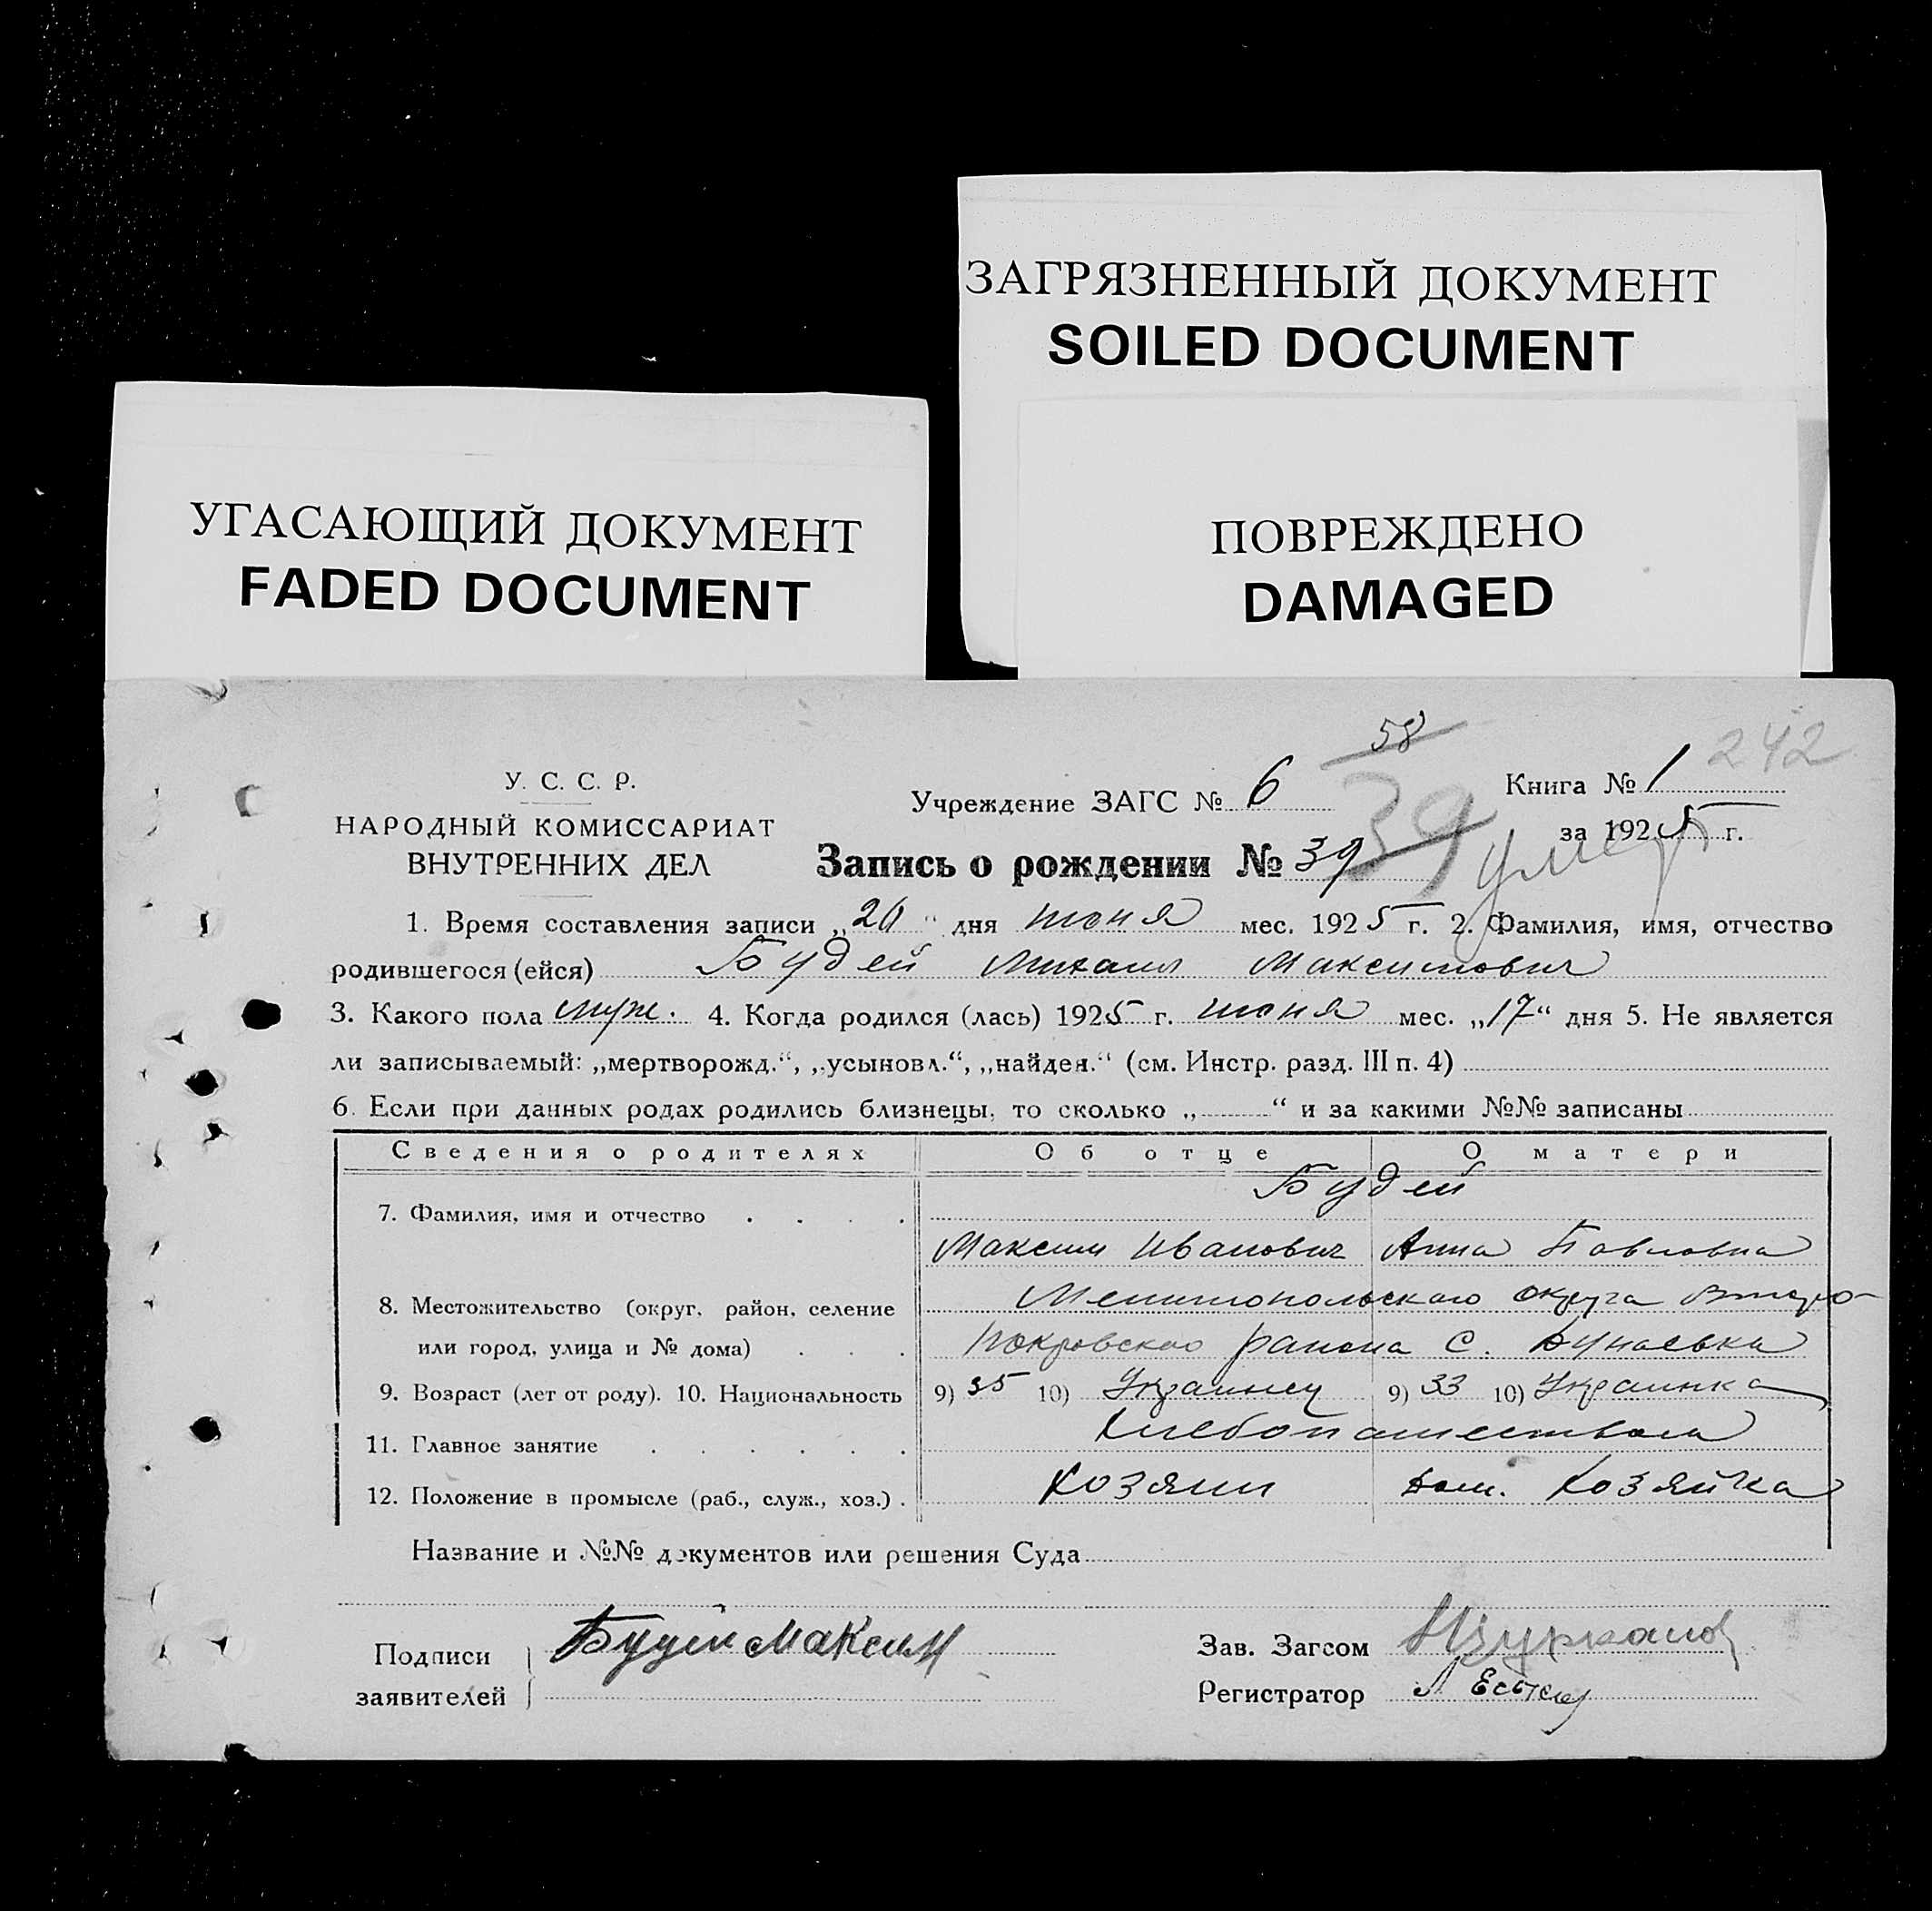 ЗАГРЯЗНЕННЫЙ ДОКУМЕНТ
SOILED DOCUMENT
УГАСАЮЩИЙ ДОКУМЕНТ
FADED DOCUMENT
ПОВРЕЖДЕНО
DAMAGED
58
242
У. С. С. Р.
НАРОДНЫЙ КОМИССАРИАТ
ВНУТРЕННИХ ДЕЛ
Учреждение ЗАГС № 6
Книга № 1
за 1925 г.
39
умер
Запись о рождении № 39
1. Время составления записи „20“ дня июня мес. 1925 г. 2. Фамилия, имя, отчество
родившегося (ейся) Будей Михаил Максимович
3. Какого пола муж. 4. Когда родился (лась) 1925 г. июня мес. „17“ дня 5. Не является
ли записываемый: „мертворожд.“, „усыновл.“, „найден.“ (см. Инстр. разд. III п. 4)
6. Если при данных родах родились близнецы, то сколько „ “ и за какими №№ записаны
Сведения о родителях Об отце О матери
7. Фамилия, имя и отчество Будей
Максим Иванович Анна Павловна
8. Местожительство (округ, район, селение Мелитопольского округа Второ-
или город, улица и № дома) Покровского района С. Дунаевка
9. Возраст (лет от роду). 10. Национальность 9) 35 10) Украинец 9) 33 10) Украинка
11. Главное занятие Хлебопашеством
12. Положение в промысле (раб., служ., хоз.) Хозяин Дом. Хозяйка
Название и №№ документов или решения Суда
Подписи
заявителей Будей Максим
Зав. Загсом
Регистратор